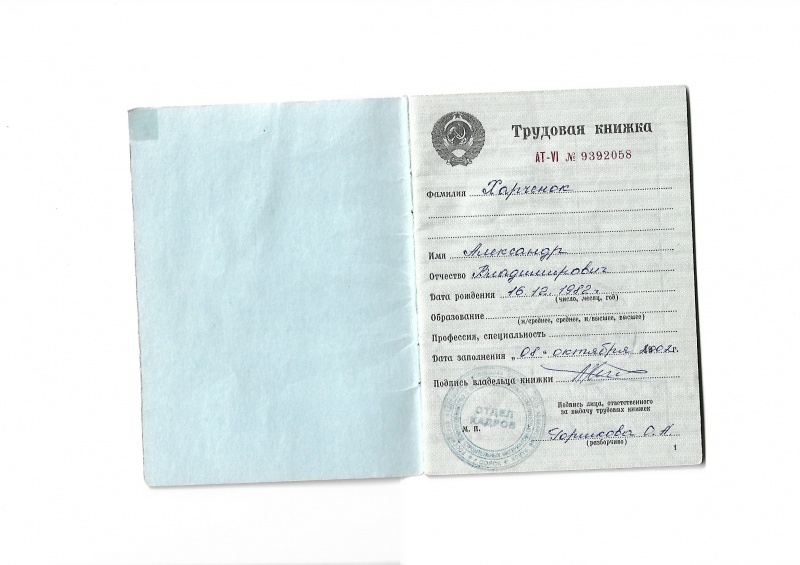 Трудовая книжка
АТ-VI № 9392058
Фамилия Харченок
Имя Александр
Отчество Владимирович
Дата рождения 16.12.1982 г.
(число, месяц, год)
Образование
(н/среднее, среднее, н/высшее, высшее)
Профессия, специальность
Дата заполнения „ 08 “ октября 2002 г.
Подпись владельца книжки
ОТДЕЛ
КАДРОВ
Подпись лица, ответственного
за выдачу трудовых книжек
М. П.
(разборчиво)
1